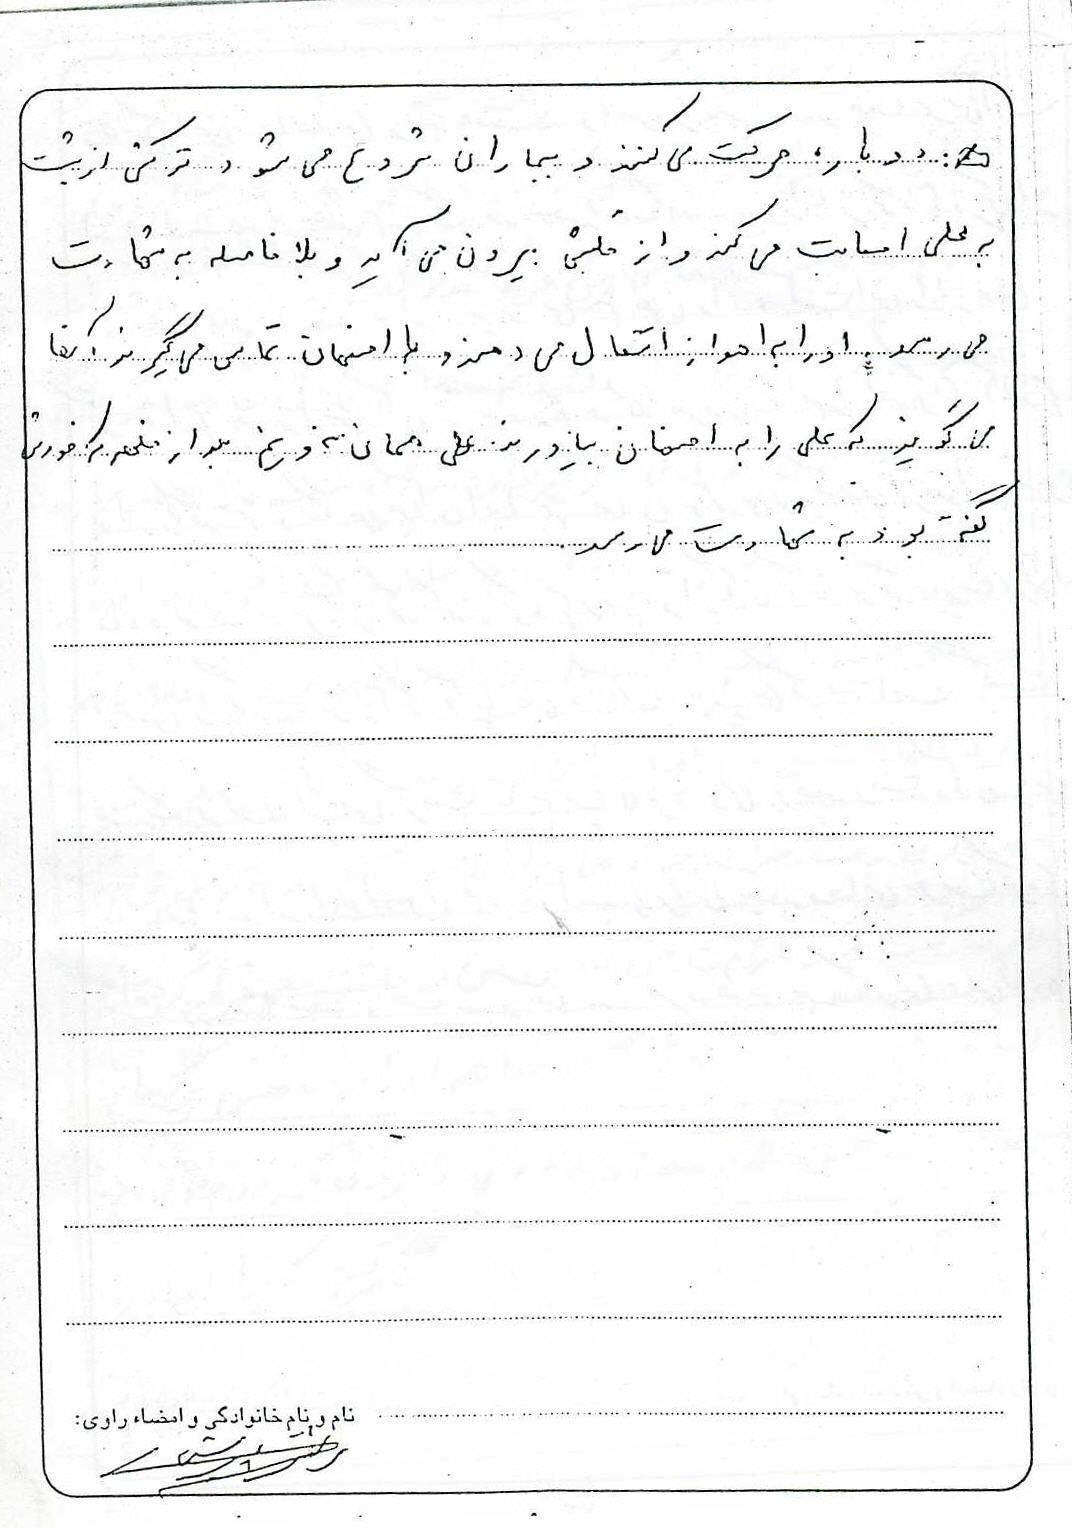 دوباره حرکت می کنند و بمباران شروع می شود ترکش از پشت
به علی اصابت می کند و از قلبش بیرون می آید و بلا فاصله به شهادت
می رسد. او را به اهواز انتقال می دهند و با اصفهان تماس می گیرند آنها
می گویند که علی را به اصفهان بیاورند علی همان تاریخ بعد از که خودش
گفته بود به شهادت می رسد.
نام و نام خانوادگی و امضاء راوی: